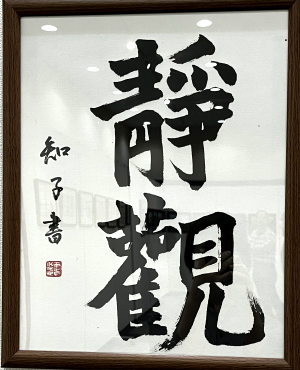 靜觀
知子書